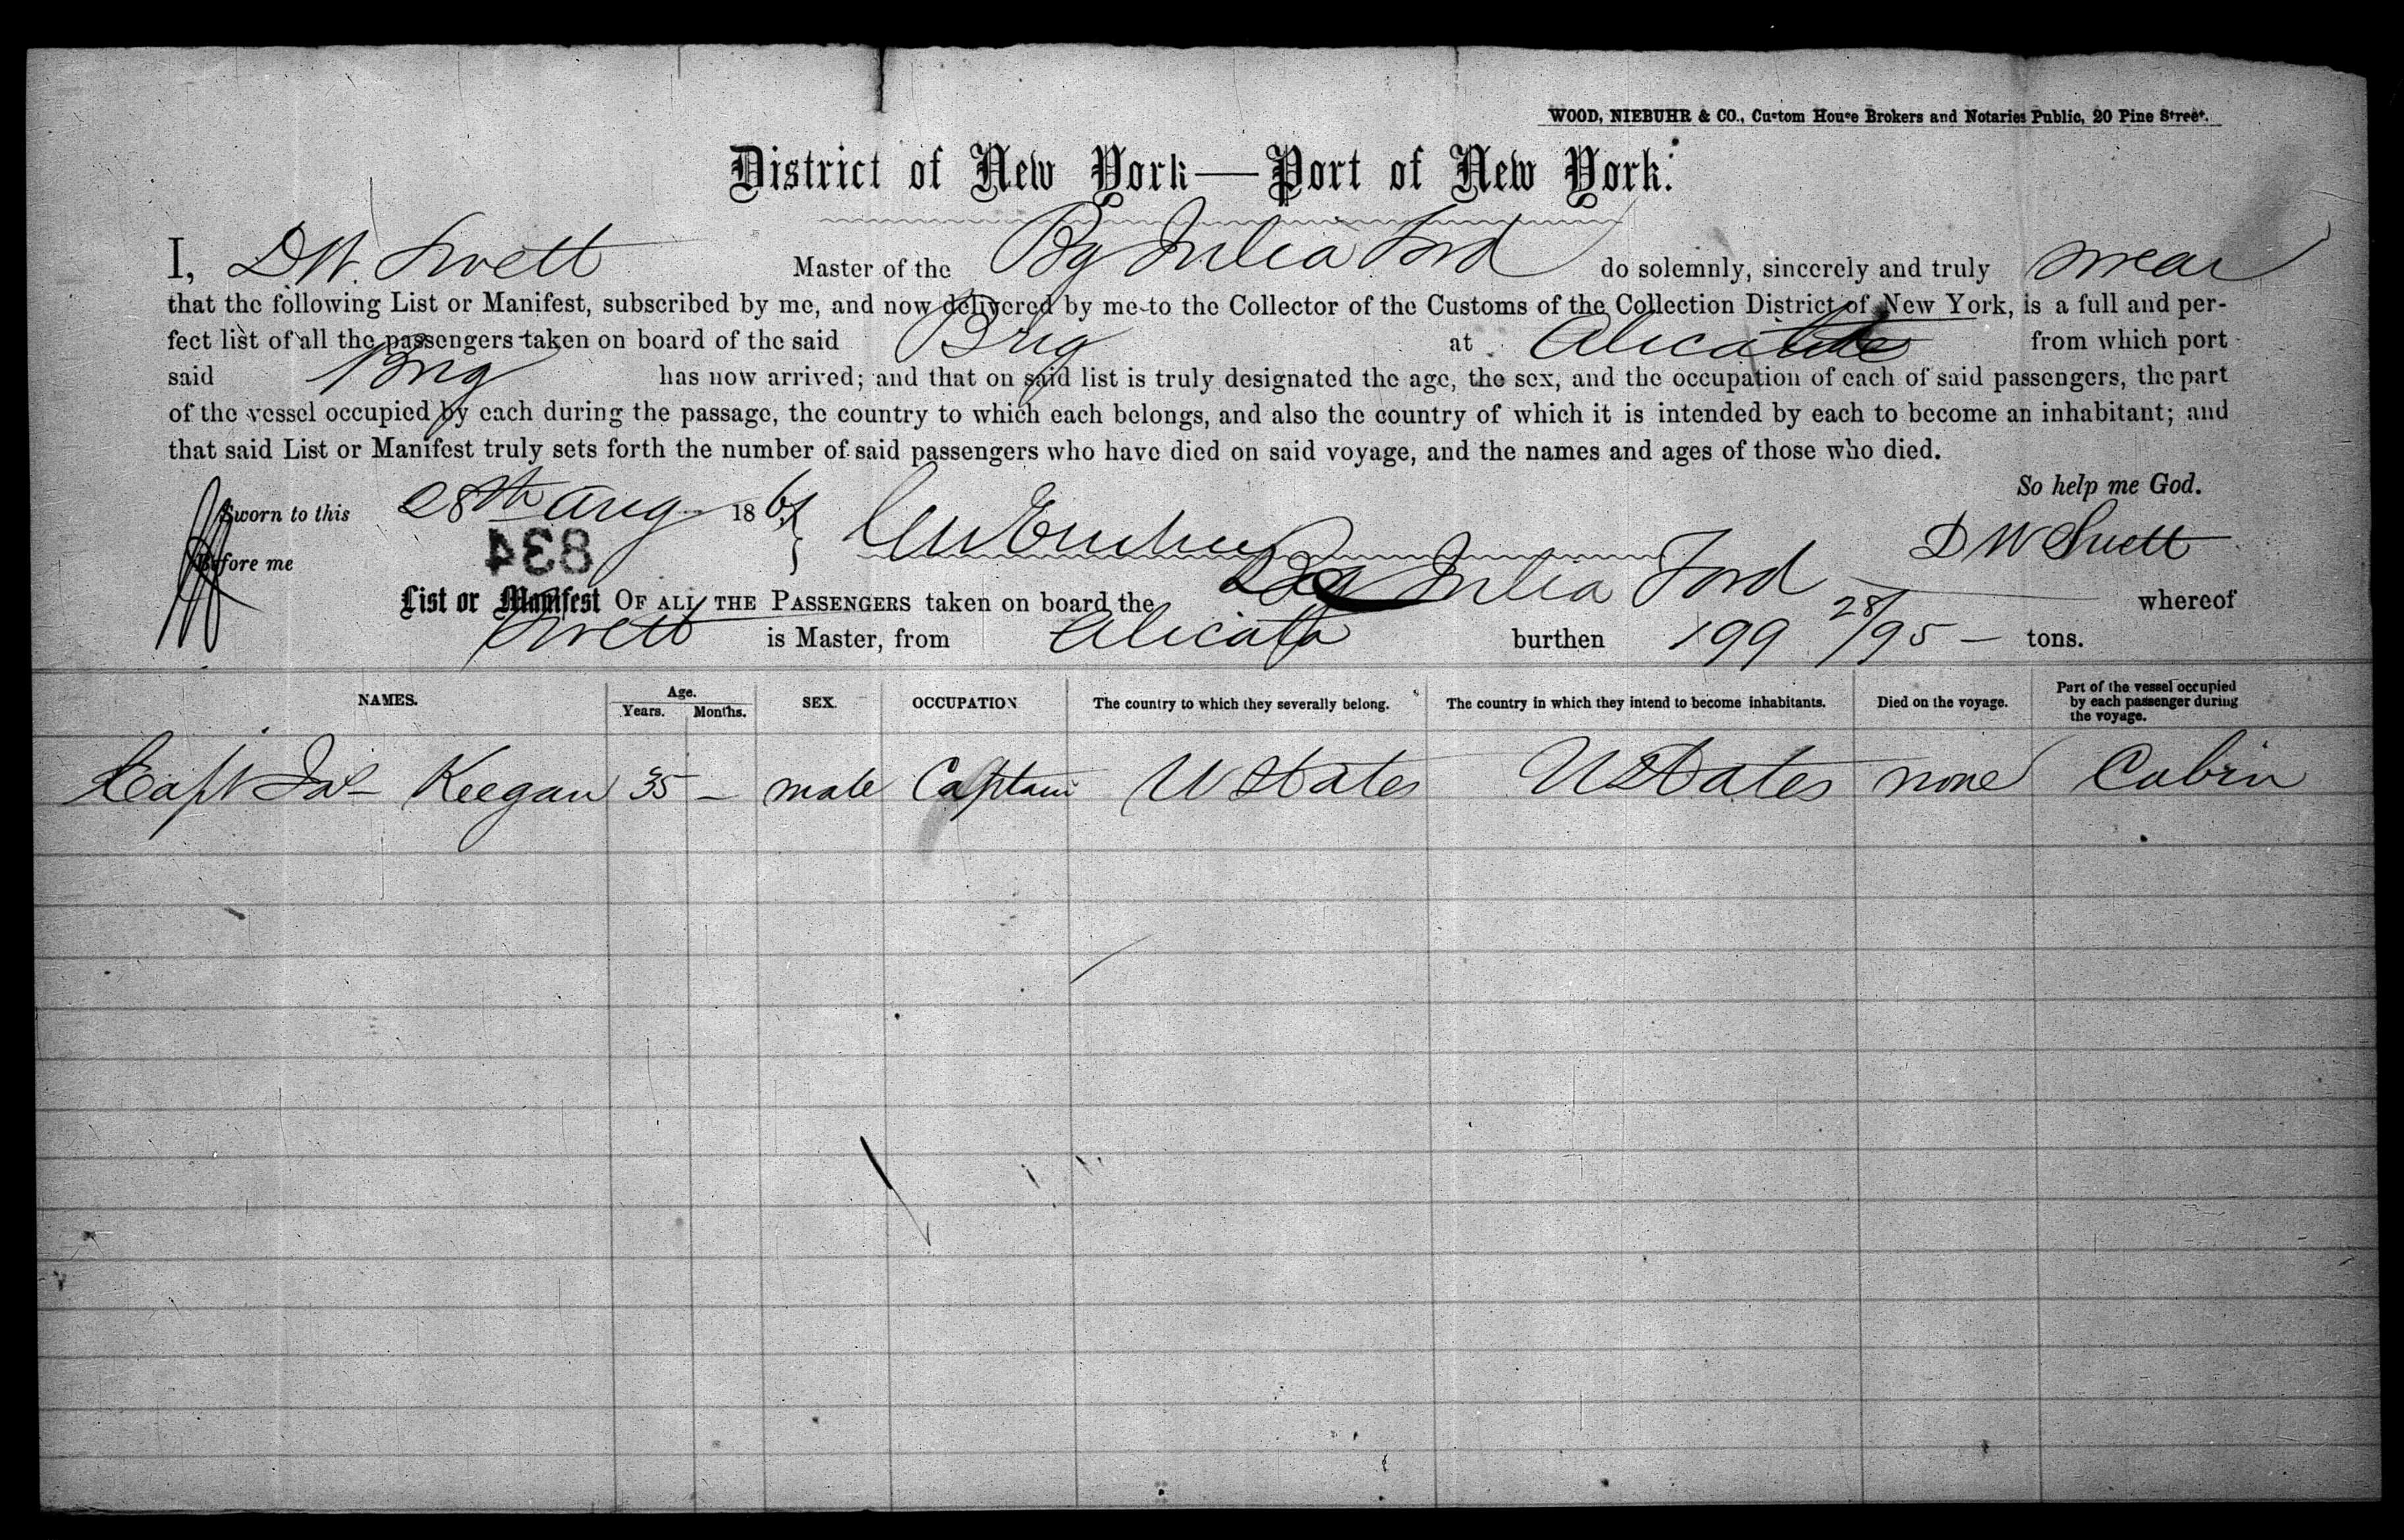 WOOD, NIEBUHR & CO., Custom House Brokers and Notaries Public, 20 Pine Street.
District of New York—Port of New York.
I, D W. Svett Master of the Bg Julia Ford do solemnly, sincerely and truly swear
that the following List or Manifest, subscribed by me, and now delivered by me to the Collector of the Customs of the Collection District of New York, is a full and per-
fect list of all the passengers taken on board of the said Brig at from which port
said Brig has now arrived; and that on said list is truly designated the age, the sex, and the occupation of each of said passengers, the part
of the vessel occupied by each during the passage, the country to which each belongs, and also the country of which it is intended by each to become an inhabitant; and
that said List or Manifest truly sets forth the number of said passengers who have died on said voyage, and the names and ages of those who died.
So help me God.
Sworn to this 28th Aug 186
Before me 834
D W Svett
List or Manifest OF ALL THE PASSENGERS taken on board the Bg Julia Ford whereof
Svett is Master, from Alicata burthen 199 28/95 — tons.
NAMES. Age. Years. Months. SEX. OCCUPATION The country to which they severally belong. The country in which they intend to become inhabitants. Died on the voyage. Part of the vessel occupied by each passenger during the voyage.
Capt Jas Keegan 35 — male Captain U States U States none Cabin